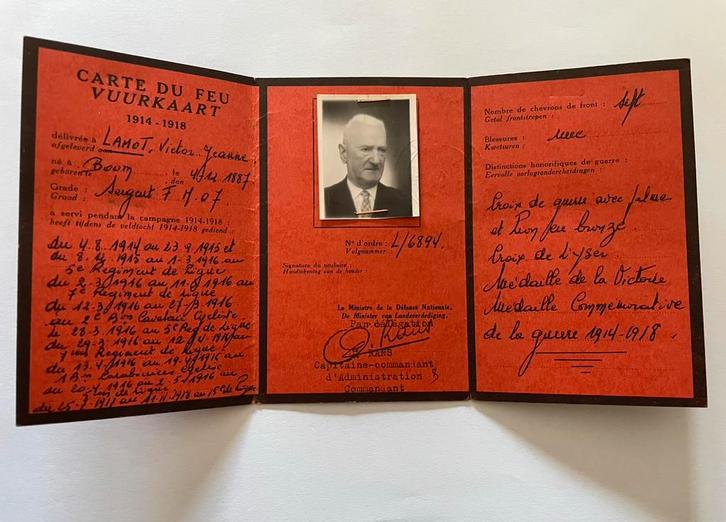 CARTE DU FEU
VUURKAART
1914-1918
délivrée à LAMOT, Victor, Jeanne
afgeleverd
né à Boom, le 4.12.1887
geboren te den
Grade : Sergent F M 07
Graad :
a servi pendant la campagne 1914-1918 :
heeft tijdens de veldtocht 1914-1918 gediend :
du 4.8.1914 au 23.9.1915 et
du 8. 1915 au 1.3.1916 au
5e Regiment de Ligne
du 2.3.1916 au 11.3.1916 au
7e Regiment de Ligne
du 12.3.1916 au 27.3.1916
au 2e Bon Cycliste
du 28.3.1916 au 5e Reg de Ligne
du 29.3.1916 au 12.4.1916 au
7ème Regiment de Ligne
du 13.4.1916 au 19.4.1916 au
1 Bon Carabiniers Cycliste
du 20.4.1916 au 2.5.1916 au
de Ligne
du 25.7.1917 au 11.11.1918 au 15e de Ligne
N° d'ordre : L/6894.
Volgnummer
Signature du titulaire :
Handtekening van de houder
Le Ministre de la Défense Nationale,
De Minister van Landsverdediging,
Par délégation
KANS
Capitaine-commandant
d'Administration B
Commandant
Nombre de chevrons de front : Sept
Getal frontstrepen :
Blessures : une
Kwetsuren :
Distinctions honorifiques de guerre :
Eervolle oorlogsonderscheidingen :
Croix de guerre avec palme
et Lion en bronze
Croix de l'Yser
Médaille de la Victoire
Médaille Commemorative
de la guerre 1914-1918.